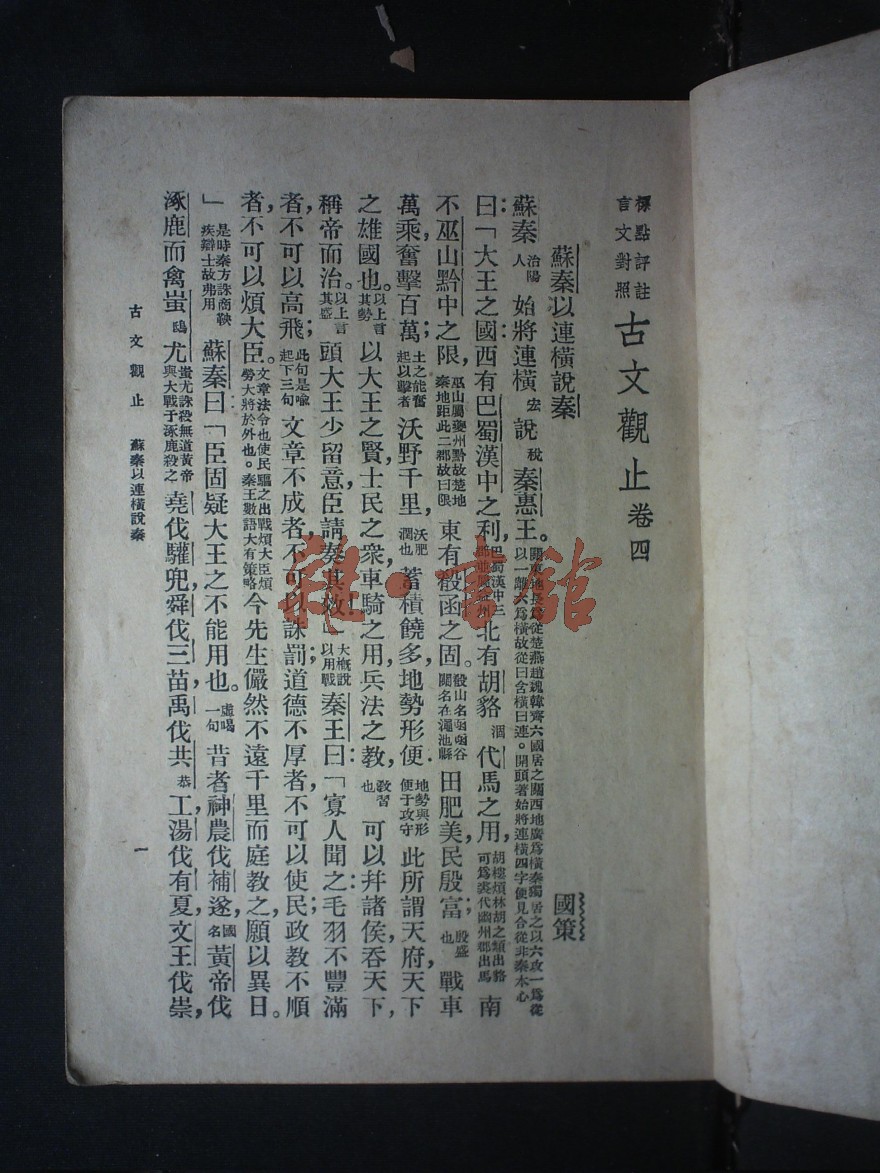 標點評註
言文對照
古文觀止 卷四
蘇秦以連橫說秦 國策
蘇秦 洛陽人 始將連橫 宏 說 稅 秦惠王。 關東地長爲從楚燕趙魏韓齊六國居之關西地廣爲橫秦獨居之以六攻一爲從以一離六爲橫故從曰合橫曰連。開頭著始將連橫四字便見合從非秦本心
曰「大王之國西有巴蜀漢中之利, 巴蜀漢中三 北有胡貉 涸 代馬之用, 胡樓煩林胡之類出貉可爲裘代幽州郡出馬 南
不巫山黔中之限, 巫山屬夔州黔故楚地秦地距此二郡故曰限 東有殽函之固。 殽山名函函谷關名在澠池縣 田肥美民殷富; 殷盛也 戰車
萬乘奮擊百萬; 士之能奮起以擊者 沃野千里, 沃肥潤也 蓄積饒多地勢形便 地勢與形便于攻守 此所謂天府天下
之雄國也。 以上言其勢 以大王之賢士民之衆車騎之用兵法之教, 教習也 可以幷諸侯吞天下,
稱帝而治。 以上言其盛 頭大王少留意臣請奏其效」 大概說以用戰 秦王曰「寡人聞之毛羽不豐滿
者,不可以高飛; 此句是喩起下三句 文章不成者,不可以誅罰道德不厚者,不可以使民政教不順
者,不可以煩大臣。 文章法令也使民驅之出戰煩大臣煩勞大將於外也。秦王數語大有策略 今先生儼然不遠千里而庭教之願以異日。
」 是時秦方誅商鞅疾辯士故弗用 蘇秦曰「臣固疑大王之不能用也。 虛喝一句 昔者神農伐補遂, 國名 黃帝伐
涿鹿而禽蚩 鴟 尤 蚩尤誅殺無道黃帝與大戰于涿鹿殺之 堯伐驩兜,舜伐三苗,禹伐共 恭 工,湯伐有夏,文王伐崇,
古文觀止 蘇秦以連橫說秦 一
雜·書館